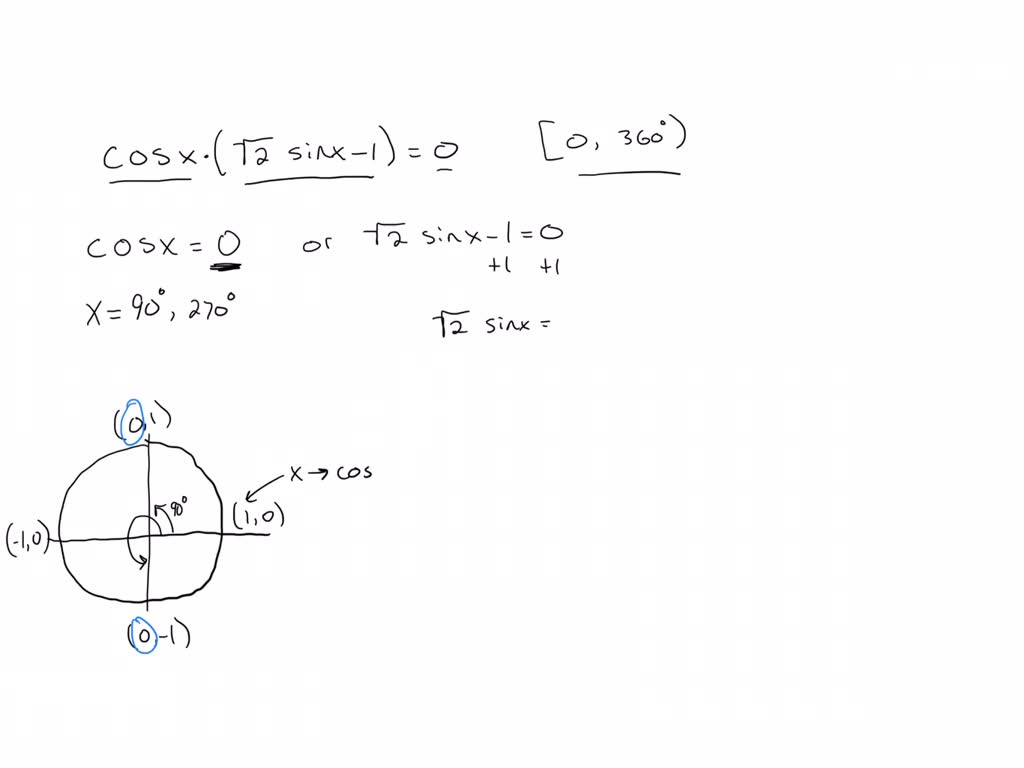 cosx·(√2 sinx-1)=0 [0, 360°)
cosx = 0 or √2 sinx-1=0
+1 +1
x=90°, 270°
√2 sinx =
(0,1)
x→cos
90°
(1,0)
(-1,0)
(0-1)